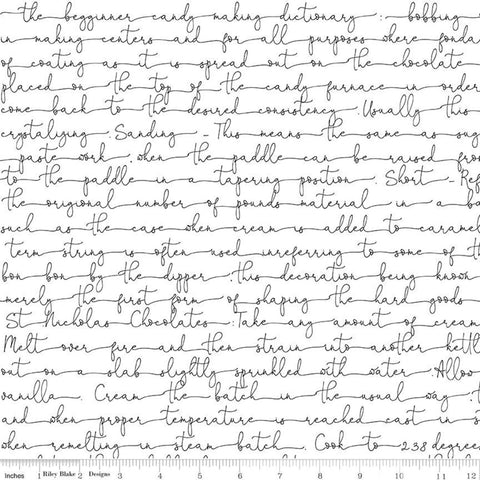 the begginner candy making dictionary : bobbing
in making centers and for all purposes where fonda
of coating as it is spread out on the chocolate
placed on the top of the candy furnace in order
come back to the desired consistency . Usually this
crystalizing . Sanding - This means the same as sug
paste work . when the paddle can be raised fro
to the paddle in a tapering position . Short - Ref
the origional number of pounds material in a ba
such as the case when cream is added to caramel
term string is often used inreferring to some of th
bon bon by the dipper . this decoration being known
merely the first form of shaping the hard goods
St Nicholas Chocolates : Take any amount of cream
Melt over fire and then strain into another kettl
out on a slab slightly sprinkled with water . Allow
vanilla . Cream the batch in the usual way : t
and when proper temperature is reached cast in s
when remelting in steam batch . Cook to 238 degree
Inches 1 Riley Blake Designs 2 3 4 5 6 7 8 9 10 11 12